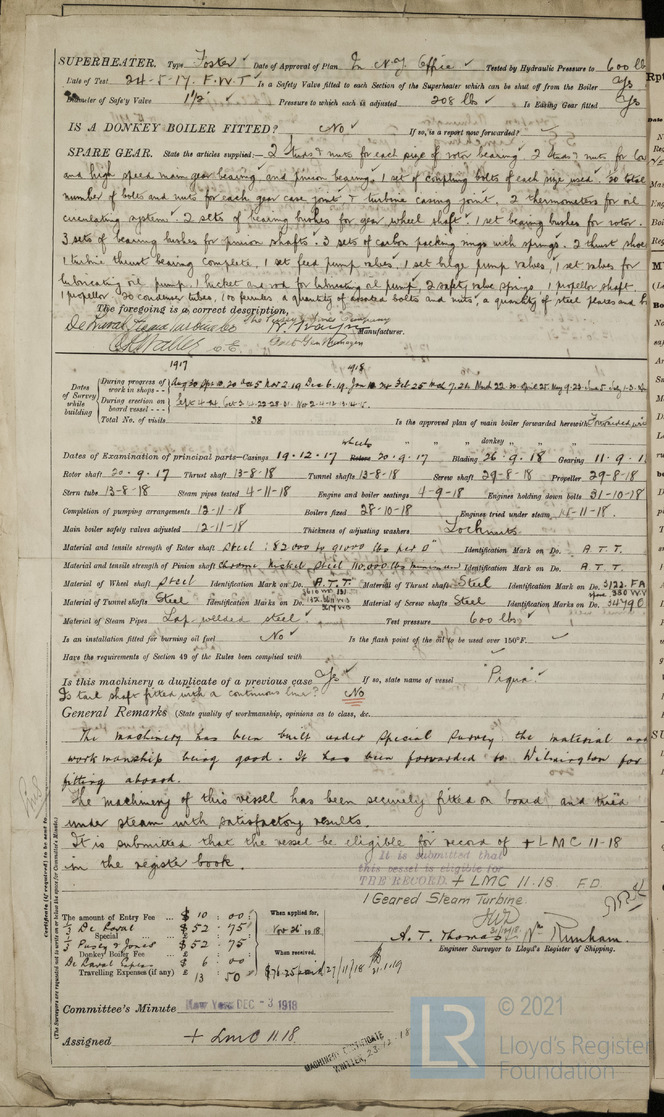 SUPERHEATER. Type Foster Date of Approval of Plan In N.Y. Office Tested by Hydraulic Pressure to 600 lb
Date of Test 24-5-17. F.W.T Is a Safety Valve fitted to each Section of the Superheater which can be shut off from the Boiler Yes
Diameter of Safety Valve 1½" Pressure to which each is adjusted 208 lbs Is Easing Gear fitted Yes
IS A DONKEY BOILER FITTED? No If so, is a report now forwarded?
SPARE GEAR. State the articles supplied:— 2 studs & nuts for each size of rotor bearing 2 studs & nuts for low
and high speed main gear bearing and pinion bearings 1 set of coupling bolts of each size used. 20 total
number of bolts and nuts for each gear case joint & turbine casing joint. 2 thermometers for oil
circulating system. 2 setts of bearing bushes for gear wheel shaft. 1 set bearing bushes for rotor.
3 sets of bearing bushes for pinion shafts. 3 sets of carbon packing rings with springs. 2 thrust shoe
1 turbine thrust bearing complete. 1 set feed pump valves. 1 set bilge pump valves. 1 set valves for
lubricating oil pump. 1 bucket and rod for lubricating oil pump. 2 safety valve springs. 1 propeller shaft.
1 propeller. 20 condenser tubes, 100 ferrules a quantity of assorted bolts and nuts, a quantity of steel plates and b
The foregoing is a correct description,
De Laval Steam Turbine Co The Pusey & Jones Company
Manufacturer.
1917 1918
Dates of Survey while building
During progress of work in shops - -
During erection on board vessel - - -
Total No. of visits 38 Is the approved plan of main boiler forwarded herewith
" " donkey " "
Dates of Examination of principal parts—Casings 19.12.17 wheels 20.9.17 Blading 26.9.18 Gearing 11.9.1
Rotor shaft 20.9.17 Thrust shaft 13-8-18 Tunnel shafts 13-8-18 Screw shaft 29-8-18 Propeller 29-8-18
Stern tube 13-8-18 Steam pipes tested 4-11-18 Engine and boiler seatings 4-9-18 Engines holding down bolts 31-10-18
Completion of pumping arrangements 12-11-18 Boilers fixed 28-10-18 Engines tried under steam 15-11-18.
Main boiler safety valves adjusted 12-11-18 Thickness of adjusting washers Locknuts
Material and tensile strength of Rotor shaft Steel: 82000 to 91000 lbs per □" Identification Mark on Do. A.T.T.
Material and tensile strength of Pinion shaft Chrome Nickel Steel 110,000 lbs minimum Identification Mark on Do. A.T.T.
Material of Wheel shaft Steel Identification Mark on Do. A.T.T Material of Thrust shaft Steel Identification Mark on Do. 3122. FA
Material of Tunnel shafts Steel Identification Marks on Do. Material of Screw shafts Steel Identification Marks on Do.
Material of Steam Pipes Lap welded steel. Test pressure 600 lbs
Is an installation fitted for burning oil fuel No Is the flash point of the oil to be used over 150°F.
Have the requirements of Section 49 of the Rules been complied with
Is this machinery a duplicate of a previous case Yes If so, state name of vessel "Piqua"
Is tail shaft fitted with a continuous liner? No
General Remarks (State quality of workmanship, opinions as to class, &c.
The machinery has been built under special survey the material and
workmanship being good. It has been forwarded to Wilmington for
fitting aboard.
The machinery of this vessel has been securely fitted on board, and tried
under steam with satisfactory results.
It is submitted that the vessel be eligible for record of + LMC 11-18
in the register book.
It is submitted that
this vessel is eligible for
THE RECORD. + LMC 11.18. F.D.
1 Geared Steam Turbine
Certificate (if required) to be sent to
(The Surveyors are requested not to write on or below the space for Committee's Minute.)
The amount of Entry Fee ... $ 10 : 00 : When applied for,
½ De Laval Special ... $ 52 . 75 : Nov 26th 1918.
½ Pusey & Jones Donkey Boiler Fee ... $ 52 . 75 When received,
De Laval £ 6 : 00
Travelling Expenses (if any) £ 13 . 50 $76.25 paid 27/11/18
A. T. Thomas Wm Dunham.
Engineer Surveyor to Lloyd's Register of Shipping.
Committee's Minute New York DEC - 3 1918
Assigned + LMC 11.18.
MACHINERY CERTIFICATE
WRITTEN 23.12.18
© 2021
LR Lloyd's Register
Foundation